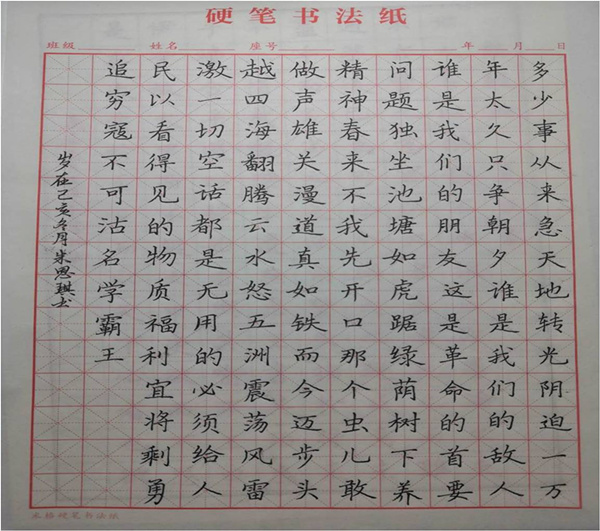 硬笔书法纸
班级 姓名 座号 年 月 日
多少事从来急天地转光阴迫一万
年太久只争朝夕谁是我们的敌人
谁是我们的朋友这是革命的首要
问题独坐池塘如虎踞绿荫树下养
精神春来不我先开口那个虫儿敢
做声雄关漫道真如铁而今迈步头
越四海翻腾云水怒五洲震荡风雷
激一切空话都是无用的必须给人
民以看得见的物质福利宜将剩勇
追穷寇不可沽名学霸王
岁在己亥冬月思琪书
米格硬笔书法纸